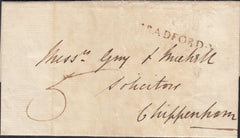 BRADFORD
Messrs Guy &
Solicitors
Chippenham
5